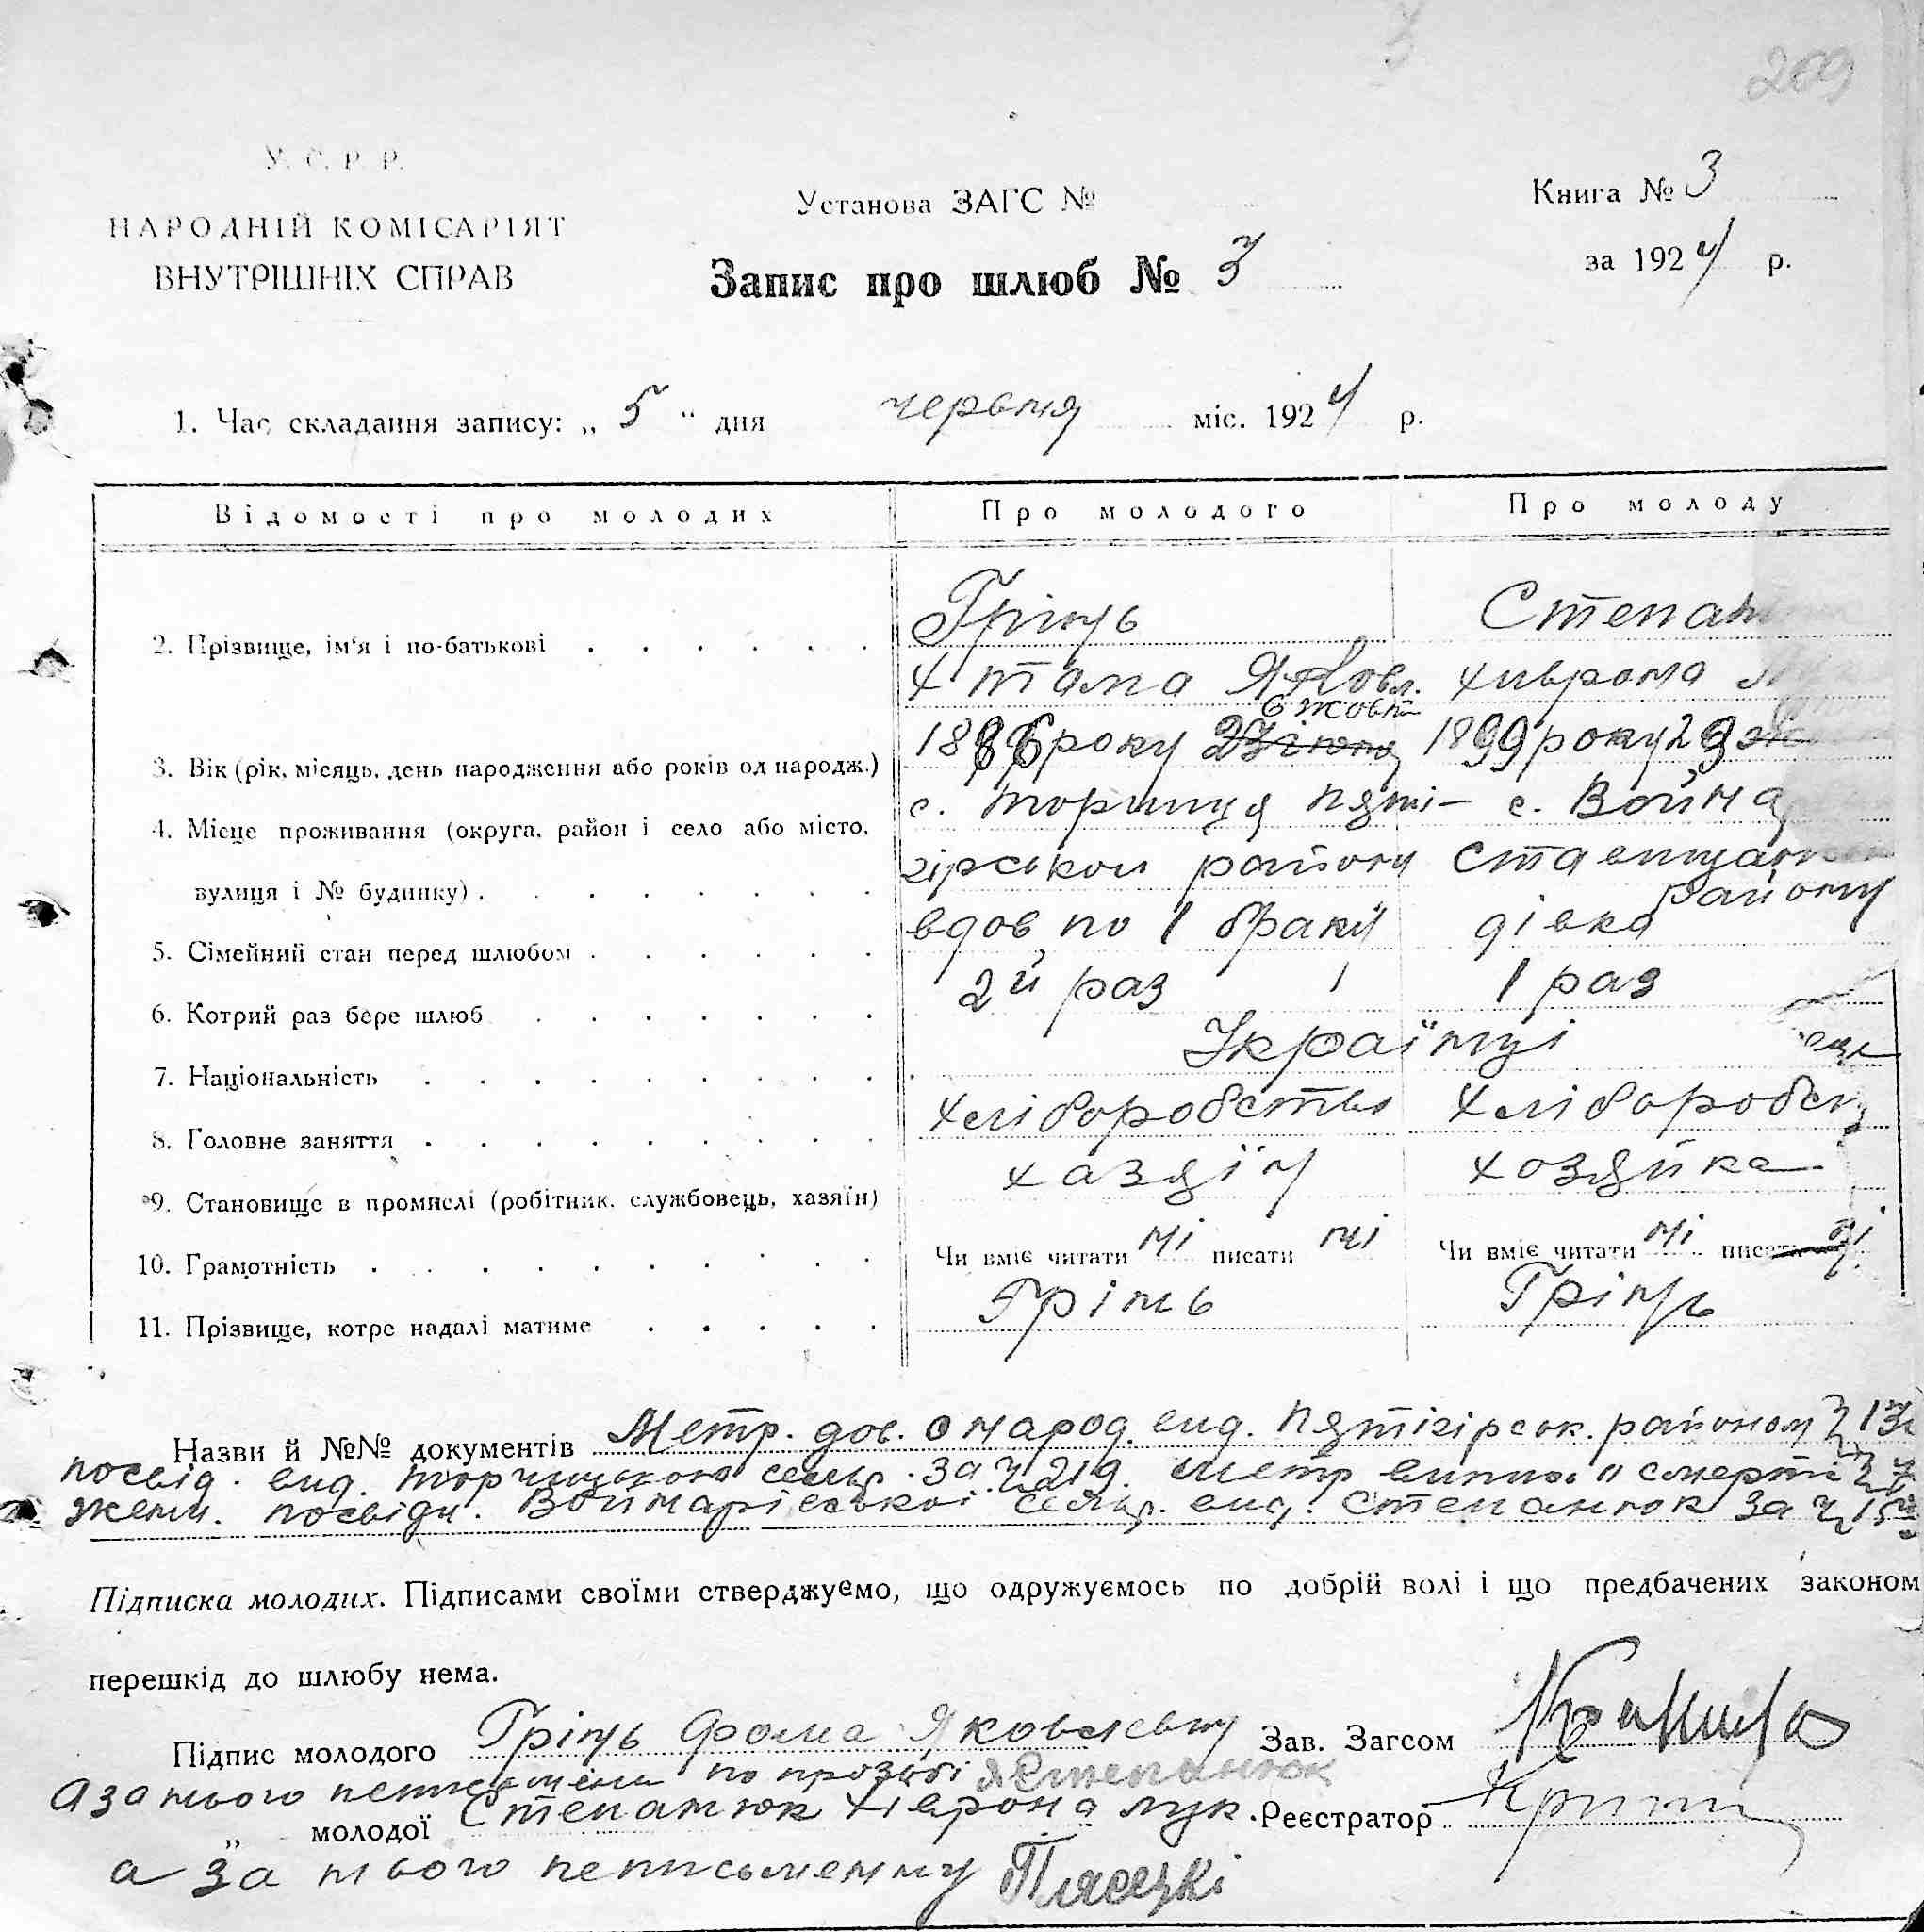 209
У. С. Р. Р.
НАРОДНІЙ КОМІСАРІЯТ
ВНУТРІШНІХ СПРАВ
Установа ЗАГС №
Запис про шлюб № 3
Книга № 3
за 1924 р.
1. Час складання запису: „ 5 “ дня червня міс. 1924 р.
Відомості про молодих Про молодого Про молоду
2. Прізвище, ім‘я і по-батькові
Грінь Степан
Хтома Яковл. Хиврона
6 жовт
3. Вік (рік, місяць, день народження або років од народж.) 1886 року 1899 року 29
4. Місце проживання (округа, район і село або місто,
вулиця і № будинку)
с. Торчиця Пяти- с. Война
гірськой району Ставищан
району
5. Сімейний стан перед шлюбом вдов по 1 браку дівка
6. Котрий раз бере шлюб 2й раз 1 раз
7. Національність Українці
8. Головне заняття Хліборобство Хлібороб
9. Становище в промислі (робітник, службовець, хазяїн) хазяїн хозяйка
10. Грамотність Чи вміє читати ні писати ні Чи вміє читати ні писати ні
11. Прізвище, котре надалі матиме Грінь Грінь
Назви й №№ документів Метр. дов. о народ. вид. Пятигірськ. районом
посвід. вид. Торчицькою сельр. за ч 219. Метр випись о смерті
жени. посвідч. Войнарівської сельр. вид. Степанюк за ч 15
Підписка молодих. Підписами своїми стверджуємо, що одружуємось по добрій волі і що предбачених законом
перешкід до шлюбу нема.
Підпис молодого Грінь Фома Яковлевич Зав. Загсом
а за нього неписьмен по прозьбі Степанюк
„ молодої Степанюк Хіврона Лук. Реєстратор
а за нього неписьменну Пясецкі